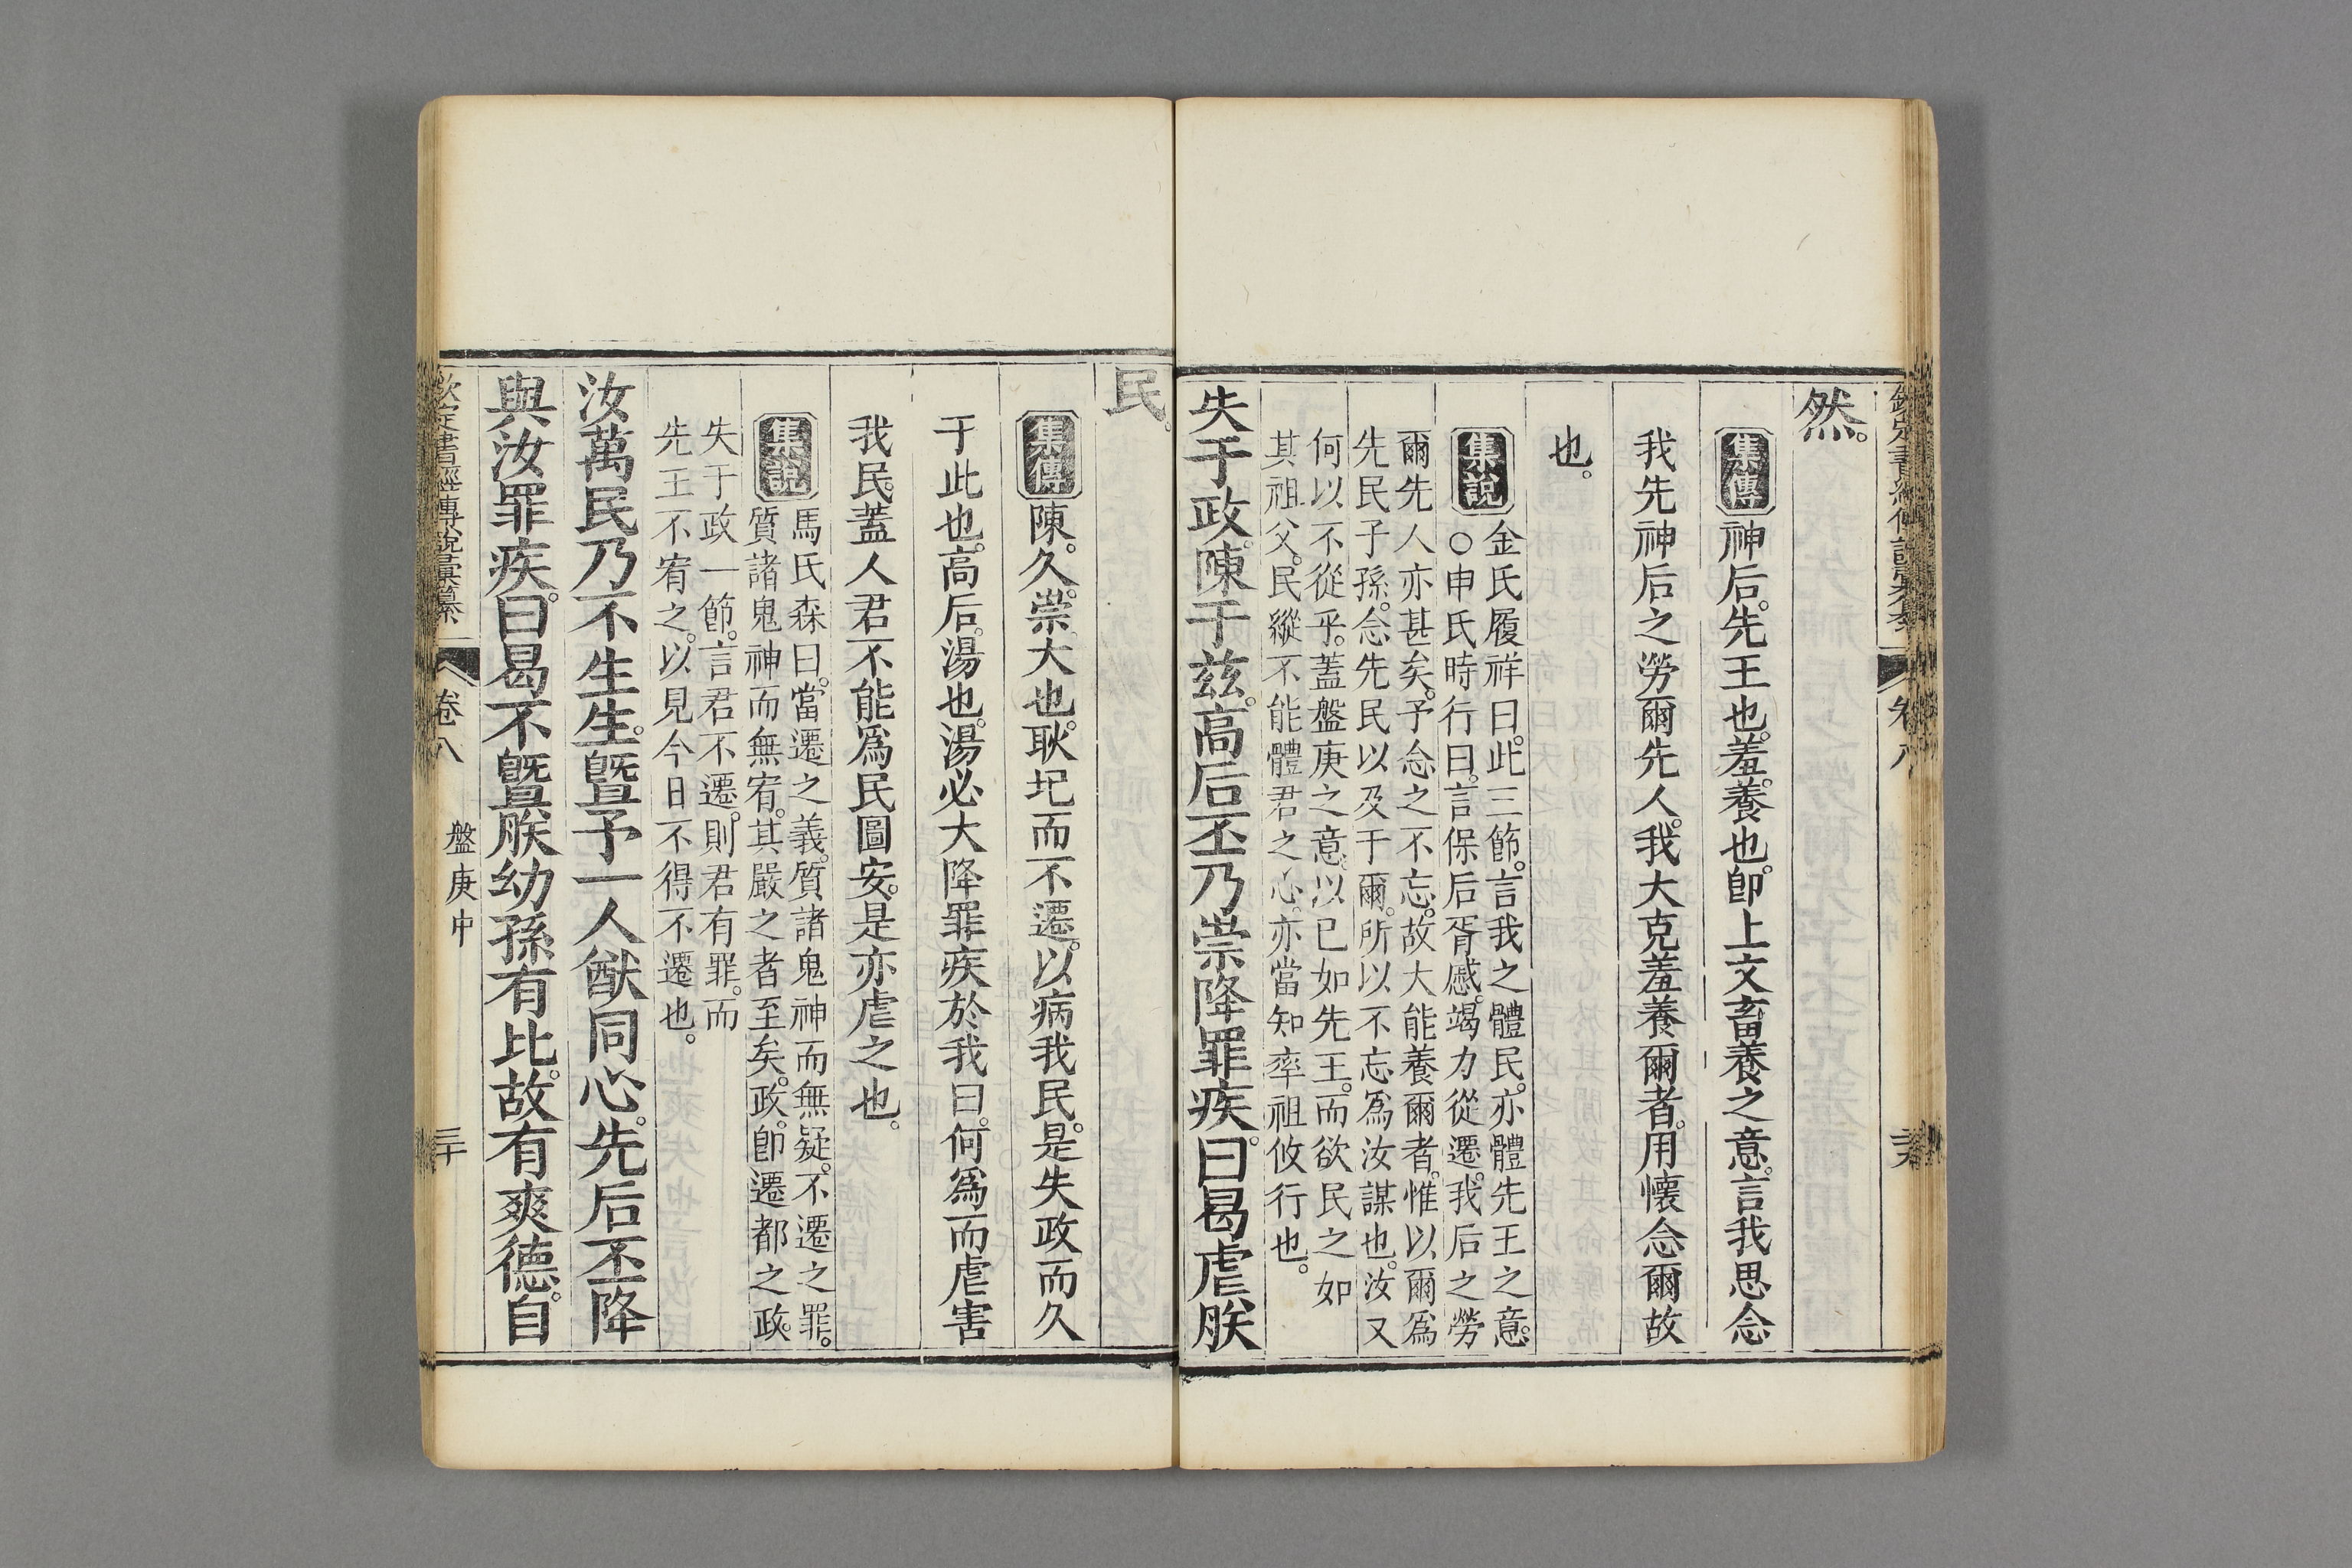 然。
集傳 神后。先王也。羞。養也。卽上文畜養之意。言我思念
我先神后之勞爾先人。我大克羞養爾者。用懷念爾故
也。
集說 金氏履祥曰。此三節。言我之體民。亦體先王之意。
○申氏時行曰。言保后胥慼。竭力從遷。我后之勞
爾先人亦甚矣。予念之不忘。故大能養爾者。惟以爾爲
先民子孫。念先民以及于爾。所以不忘爲汝謀也。汝又
何以不從乎。蓋盤庚之意。以已如先王。而欲民之如
其祖父。民縱不能體君之心。亦當知率祖攸行也。
失于政。陳于茲。高后丕乃崇降罪疾。曰曷虐朕
民。
集傳 陳。久。崇。大也。耿圯而不遷。以病我民。是失政而久
于此也。高后。湯也。湯必大降罪疾於我。曰。何爲而虐害
我民。蓋人君不能爲民圖安。是亦虐之也。
集說 馬氏森曰。當遷之義。質諸鬼神而無疑。不遷之罪。
質諸鬼神而無宥。其嚴之者至矣。政。卽遷都之政。
失于政一節。言君不遷。則君有罪。而
先王不宥之。以見今日不得不遷也。
汝萬民乃不生生。曁予一人猷同心。先后丕降
與汝罪疾。曰曷不曁朕幼孫有比。故有爽德。自
欽定書經傳說彙纂 卷八 盤庚中 三十